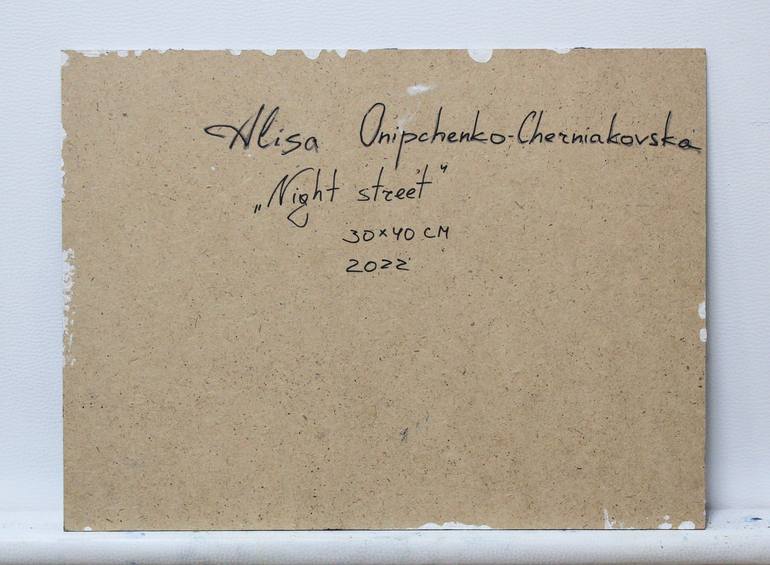 Alisa Onipchenko-Cherniakovska
„Night street“
30×40 см
2022